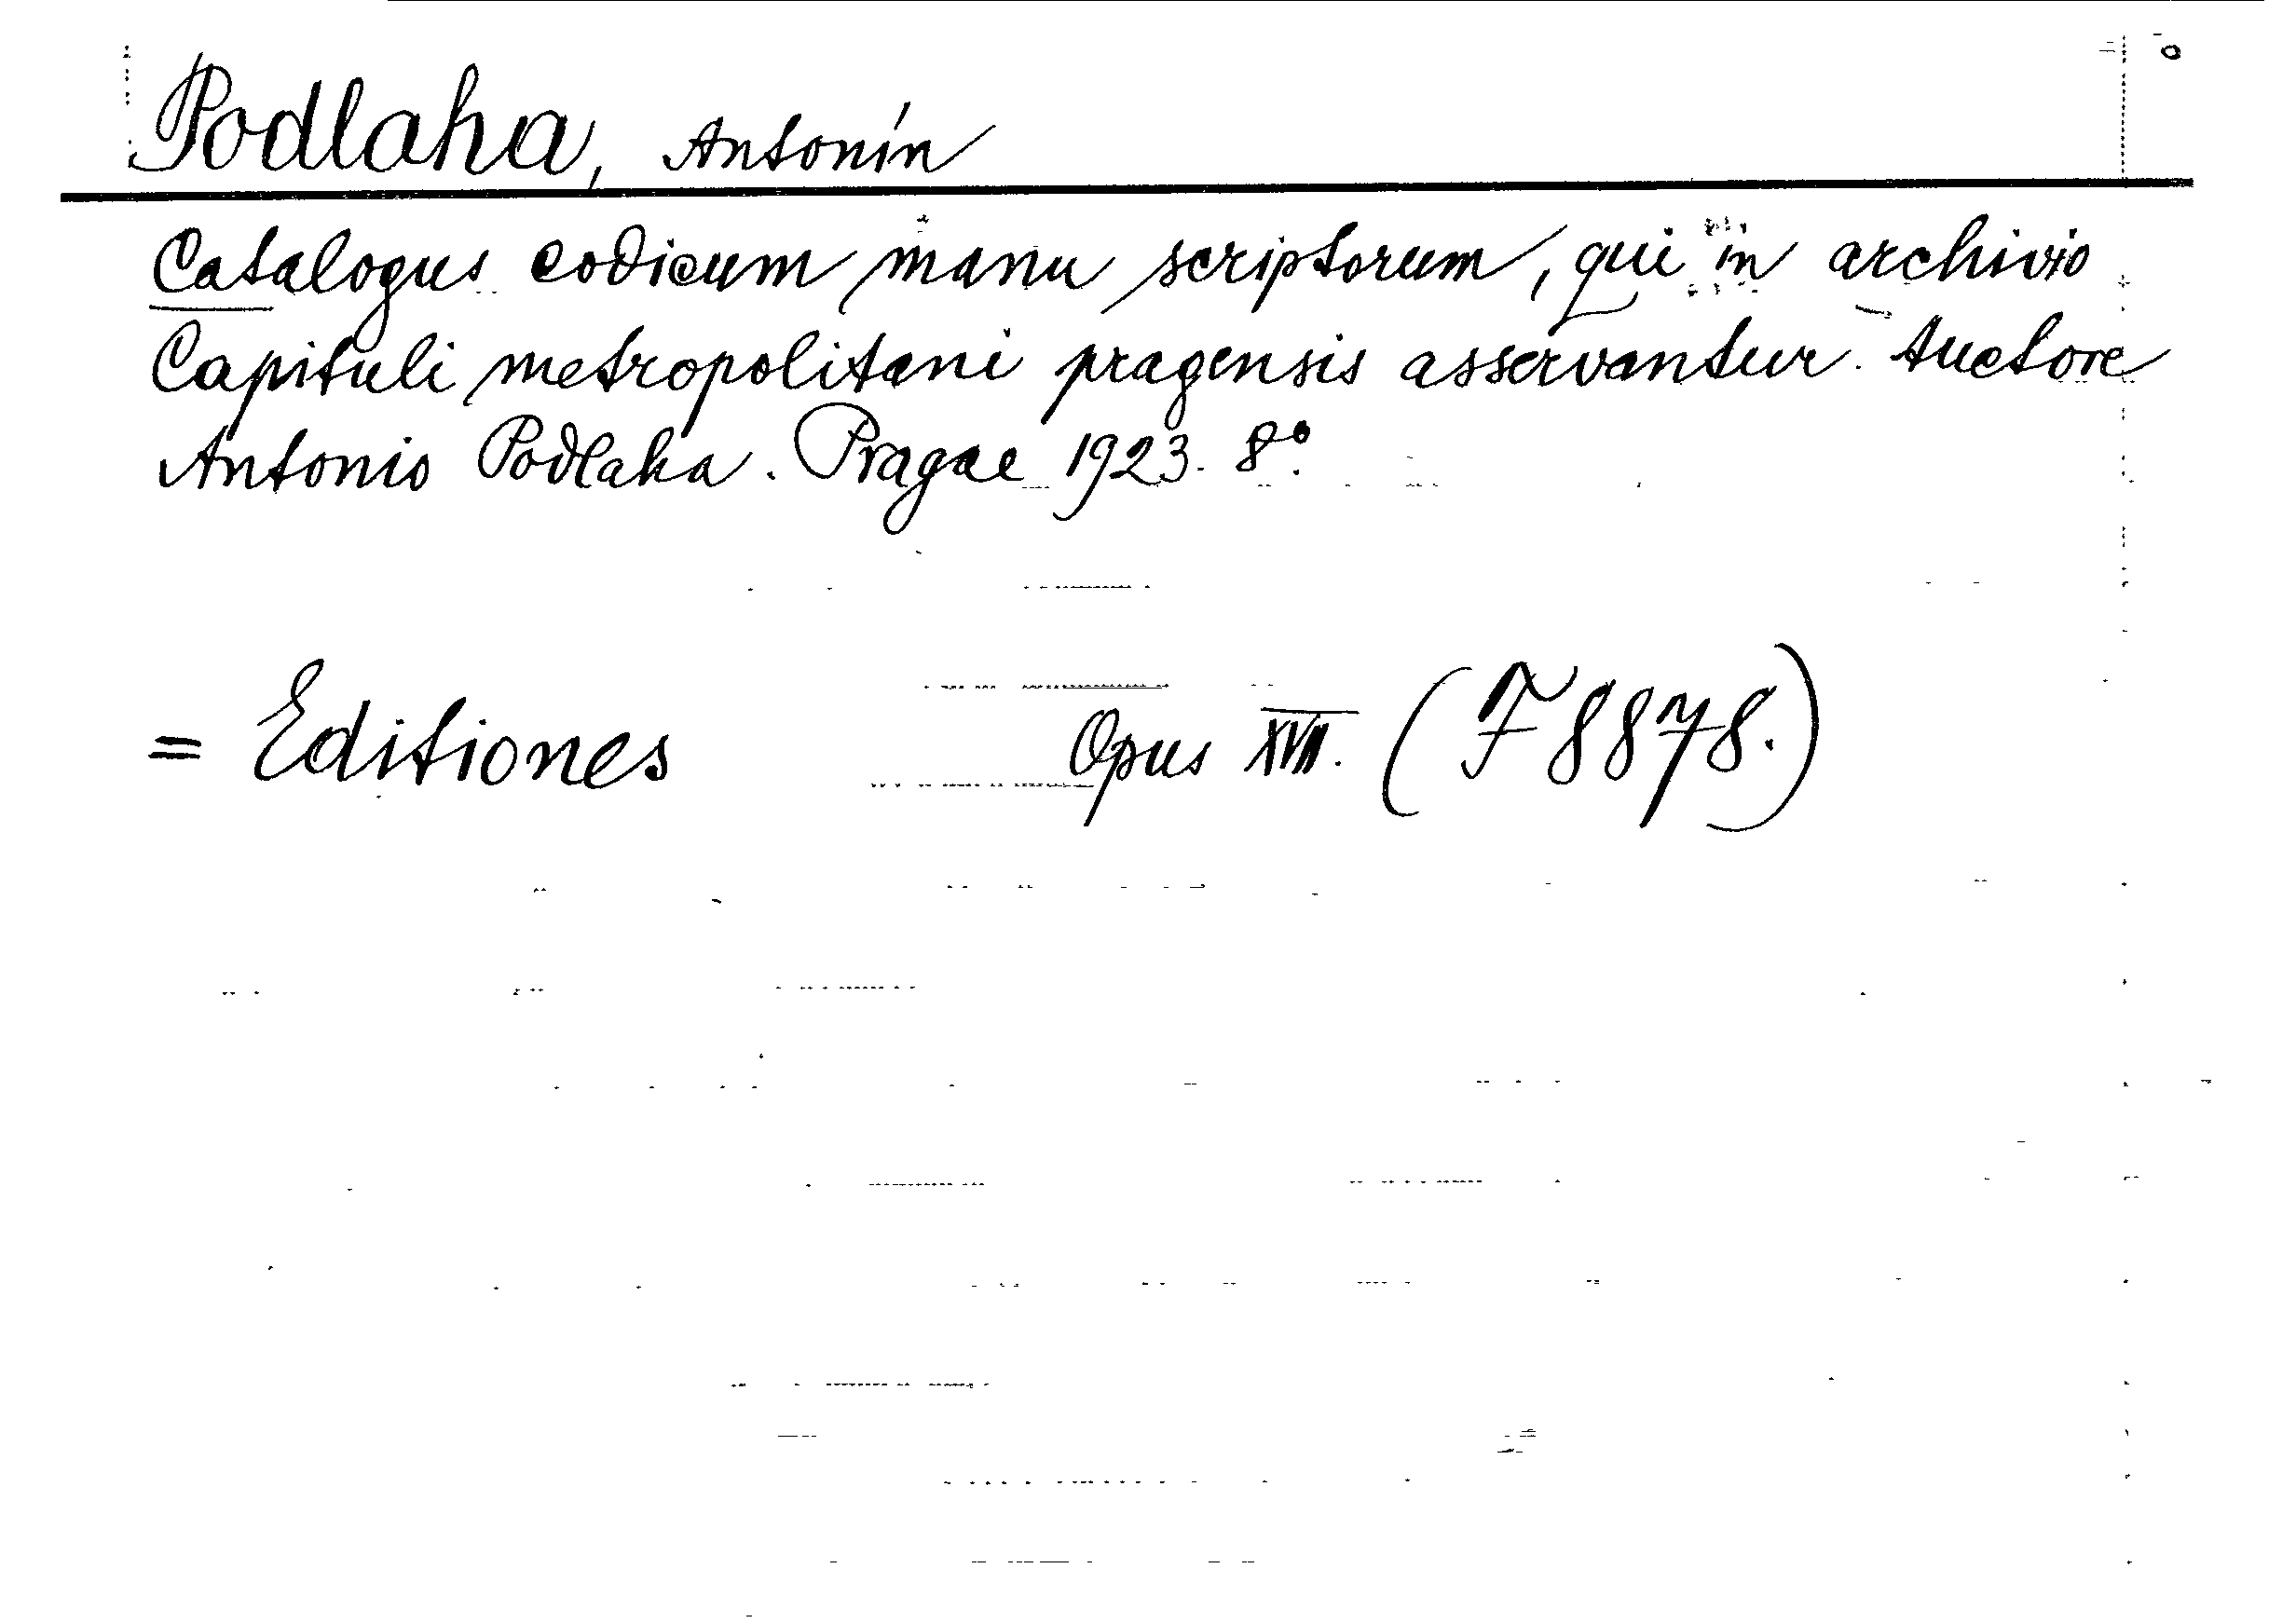 Podlaha, Antonín
Catalogus codicum manu scriptorum, qui in archivio
Capituli metropolitani pragensis asservantur. Auctore
Antonio Podlaha. Pragae 1923. 8°.
= Editiones Opus XVII. (F 8878.)